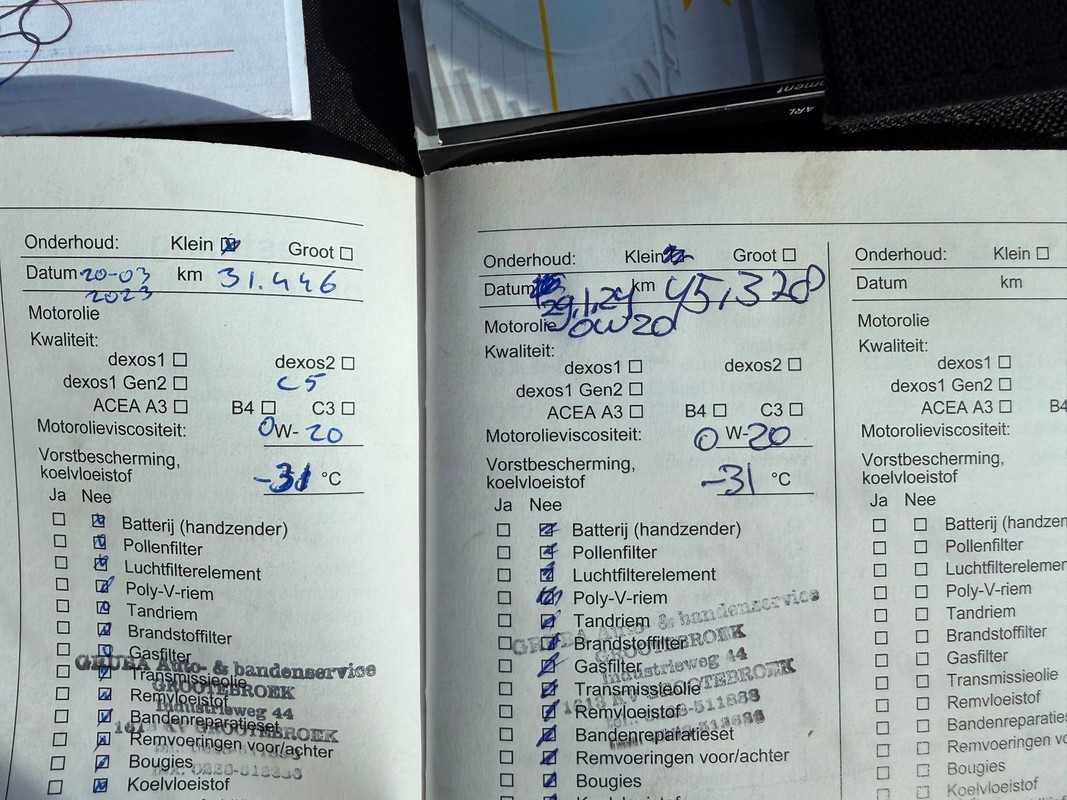 ment
ARL
Onderhoud: Klein Groot
Datum 20-03 2023 km 31.446
Motorolie
Kwaliteit:
dexos1 dexos2
dexos1 Gen2 C5
ACEA A3 B4 C3
Motorolieviscositeit: 0W-20
Vorstbescherming,
koelvloeistof -31 °C
Ja Nee
Batterij (handzender)
Pollenfilter
Luchtfilterelement
Poly-V-riem
Tandriem
Brandstoffilter
Gasfilter
Transmissieolie
Remvloeistof
Bandenreparatieset
Remvoeringen voor/achter
Bougies
Koelvloeistof
GRUBA Auto- & bandenservice
GROOTEBROEK
Industrieweg 44
GROOTEBROEK
Onderhoud: Klein Groot
Datum 29,1,24 km 45,328
Motorolie 0W20
Kwaliteit:
dexos1 dexos2
dexos1 Gen2
ACEA A3 B4 C3
Motorolieviscositeit: 0 W-20
Vorstbescherming,
koelvloeistof -31 °C
Ja Nee
Batterij (handzender)
Pollenfilter
Luchtfilterelement
Poly-V-riem
Tandriem
Brandstoffilter
Gasfilter
Transmissieolie
Remvloeistof
Bandenreparatieset
Remvoeringen voor/achter
Bougies
GRUBA Auto- & bandenservice
GROOTEBROEK
Industrieweg 44
1613 KV GROOTEBROEK
Onderhoud: Klein
Datum km
Motorolie
Kwaliteit:
dexos1
dexos1 Gen2
ACEA A3 B4
Motorolieviscositeit:
Vorstbescherming,
koelvloeistof
Ja Nee
Batterij (handzen
Pollenfilter
Luchtfilterelemen
Poly-V-riem
Tandriem
Brandstoffilter
Gasfilter
Transmissieolie
Remvloeistof
Bandenreparaties
Remvoeringen vo
Bougies
Koelvloeistof